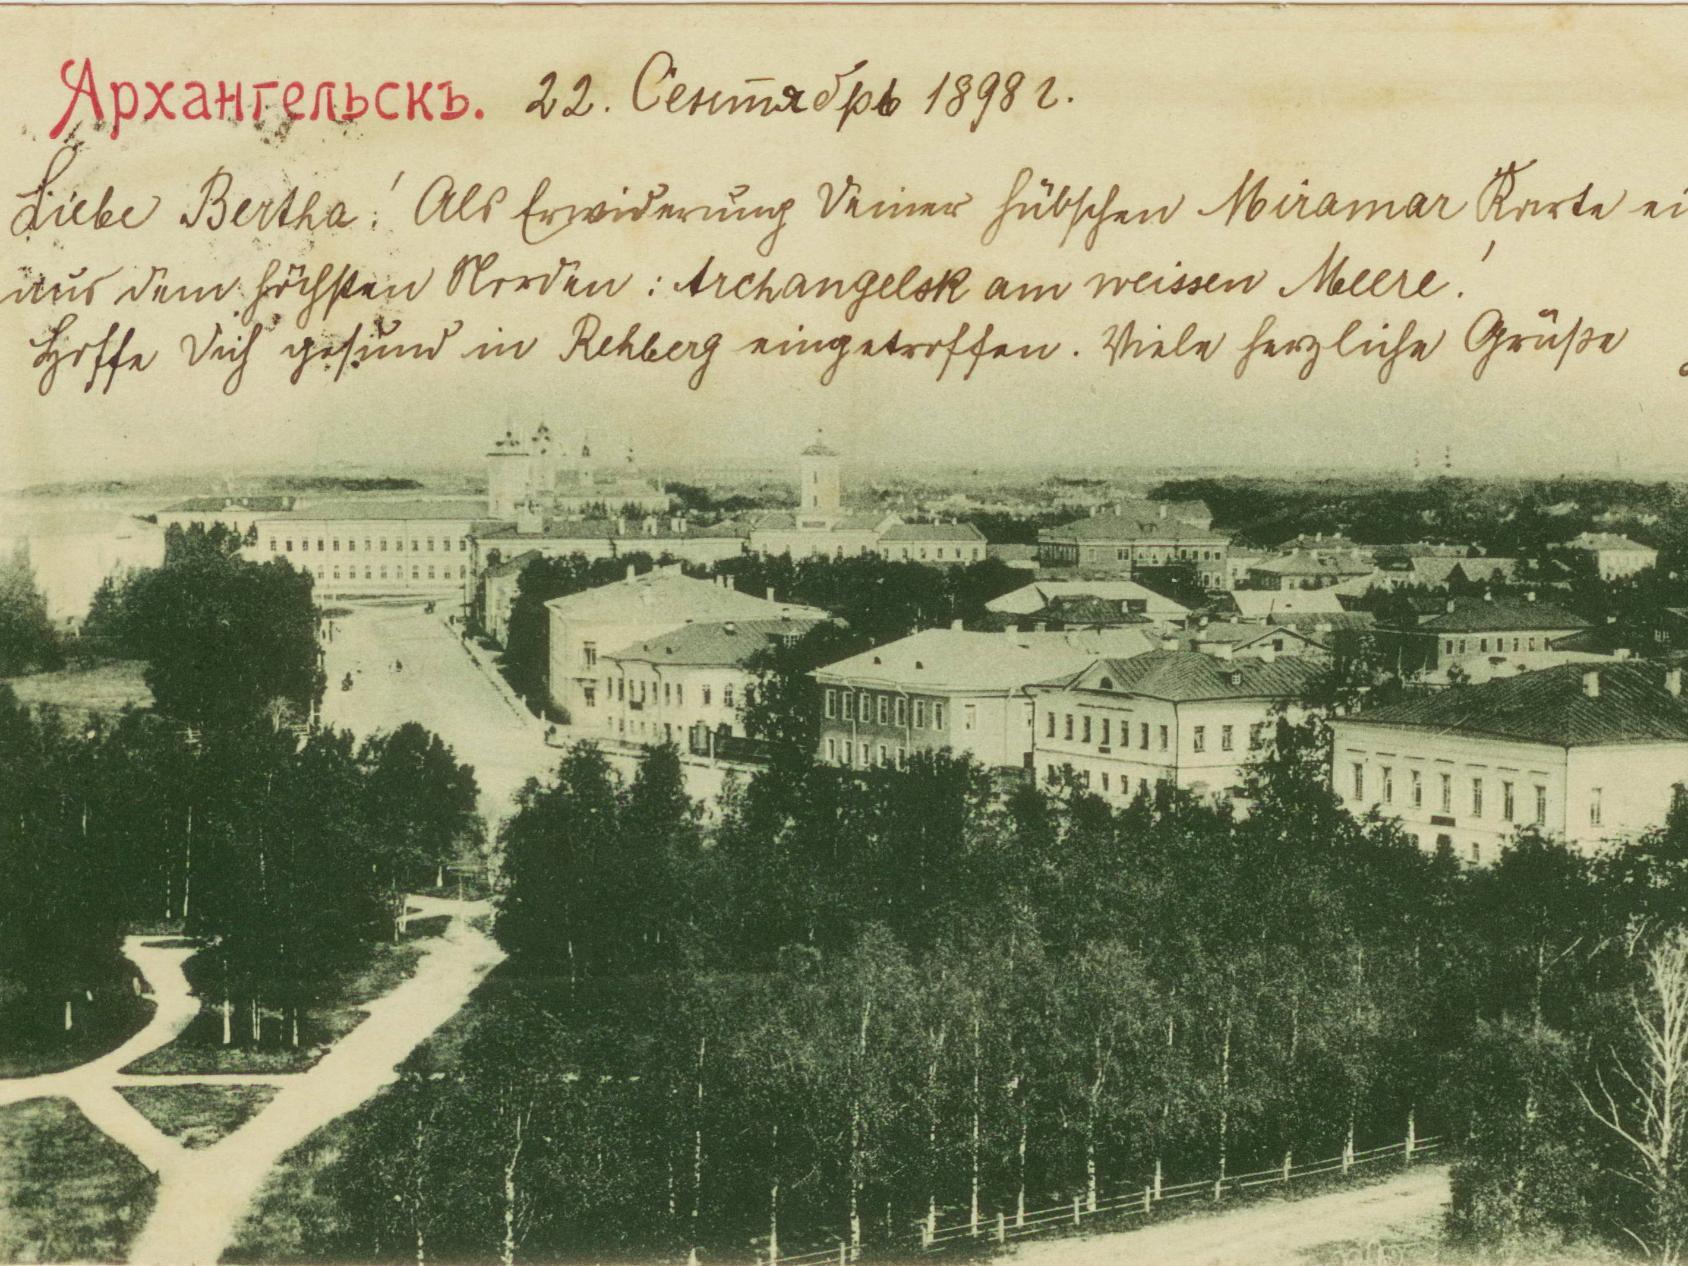 Архангельскъ. 22. Сентябрь 1898 г.
Liebe Bertha! Als Erwiderung Deiner hübschen Miramar Karte ei
aus dem höchsten Norden: Archangelsk am weissen Meere!
Hoffe Dich gesund in Rehberg eingetroffen. Viele herzliche Grüße